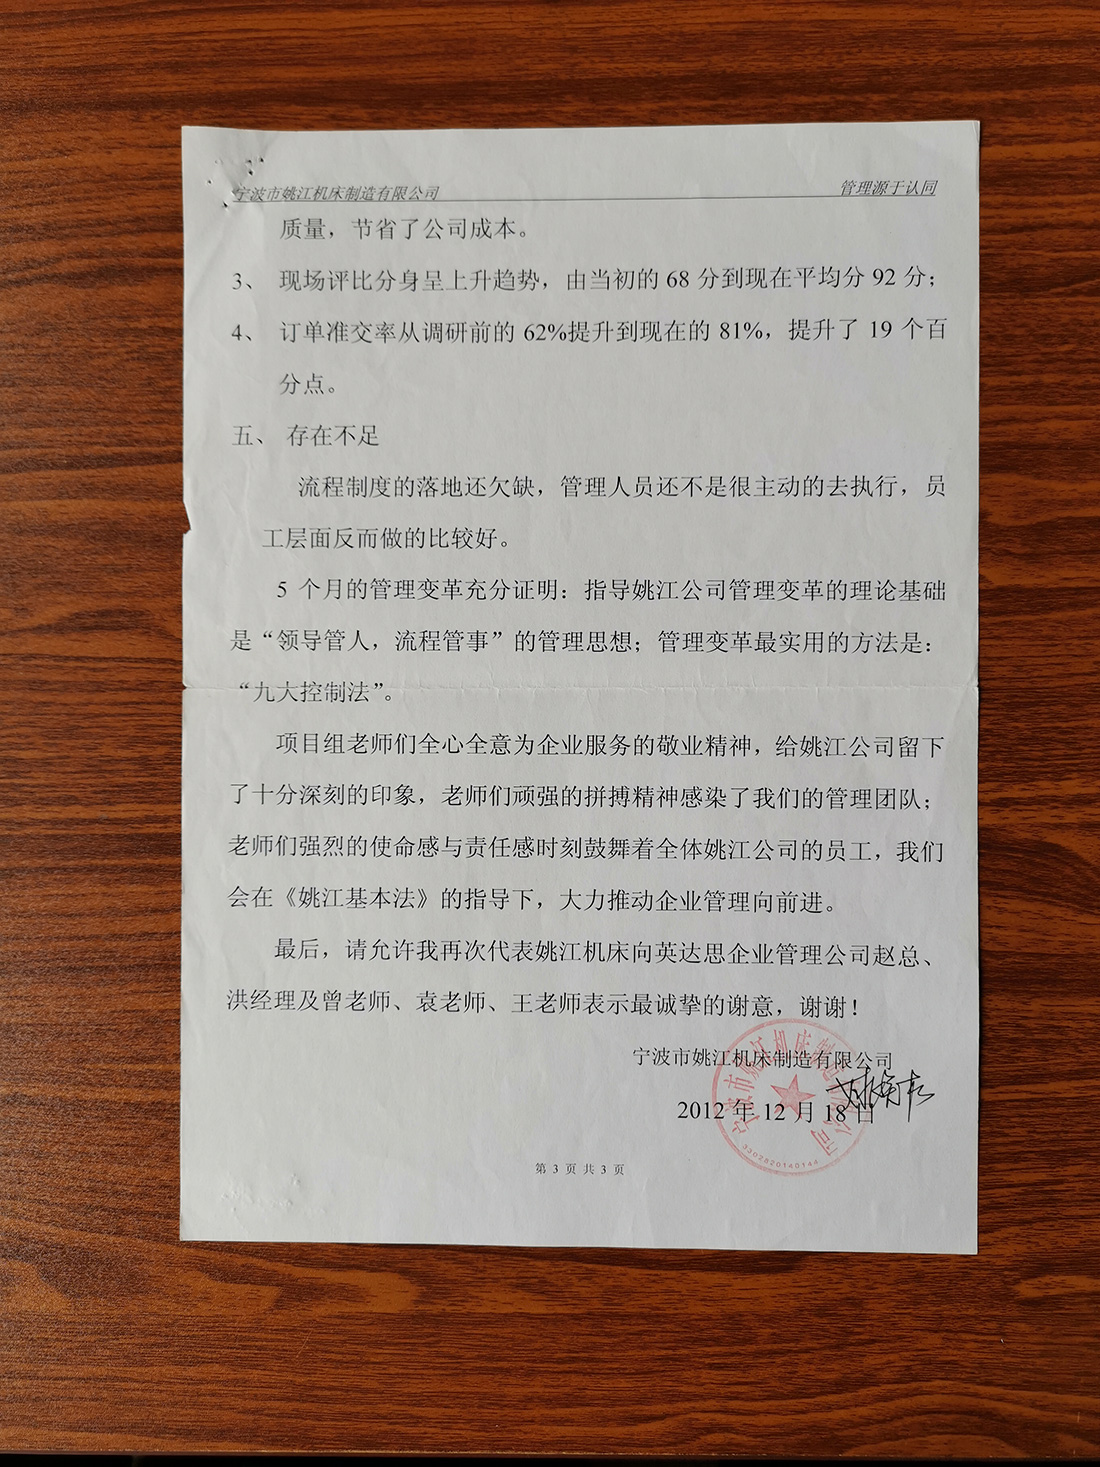 宁波市姚江机床制造有限公司 管理源于认同
质量，节省了公司成本。
3、 现场评比分身呈上升趋势，由当初的 68 分到现在平均分 92 分；
4、 订单准交率从调研前的 62%提升到现在的 81%，提升了 19 个百
分点。
五、 存在不足
流程制度的落地还欠缺，管理人员还不是很主动的去执行，员
工层面反而做的比较好。
5 个月的管理变革充分证明：指导姚江公司管理变革的理论基础
是“领导管人，流程管事”的管理思想；管理变革最实用的方法是：
“九大控制法”。
项目组老师们全心全意为企业服务的敬业精神，给姚江公司留下
了十分深刻的印象，老师们顽强的拼搏精神感染了我们的管理团队；
老师们强烈的使命感与责任感时刻鼓舞着全体姚江公司的员工，我们
会在《姚江基本法》的指导下，大力推动企业管理向前进。
最后，请允许我再次代表姚江机床向英达思企业管理公司赵总、
洪经理及曾老师、袁老师、王老师表示最诚挚的谢意，谢谢！
宁波市姚江机床制造有限公司
2012 年 12 月 18 日
宁波市姚江机床制造有限公司
3302820140144
第 3 页 共 3 页